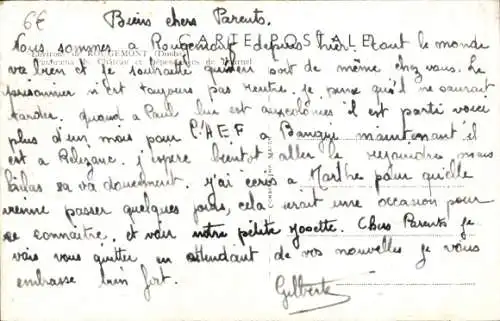 6€
Biens chers Parents.
CARTE POSTALE
Environs de ROUGEMONT (Doubs)
Nous sommes a Rougemont depuis hier. tout le monde
va bien et je souhaite qu'il en soit de même chez vous. Le
prisonnier n'est toujours pas rentré. je pense qu'il ne saurait
tarder. quand a Paul lui est aux colonies il est parti voici
plus d'un mois pour l'AEF a Bangui maintenant il
est a j'espère bientot aller le rejoindre mais
hélas sa va doucement. j'ai ecris a Marthe pour qu'elle
vienne passer quelques jours, cela serait une occasion pour
se connaitre, et voir notre petite Josette. Chers Parents je
vais vous quitter en attendant de vos nouvelles je vous
embrasse bien fort.
Gilberte